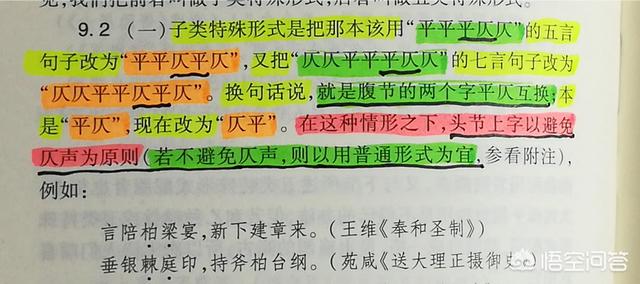 9.2 (一)子类特殊形式是把那本该用“平平平仄仄”的五言
句子改为“平平仄平仄”,又把“仄仄平平平仄仄”的七言句子改为
“仄仄平平仄平仄”。换句话说,就是腹节的两个字平仄互换;本
是“平仄”,现在改为“仄平”。在这种情形之下,头节上字以避免
仄声为原则(若不避免仄声,则以用普通形式为宜,参看附注),
例如:
言陪柏梁宴,新下建章来。(王维《奉和圣制》)
垂银棘庭印,持斧柏台纲。(苑咸《送大理正摄御史
悟空问答